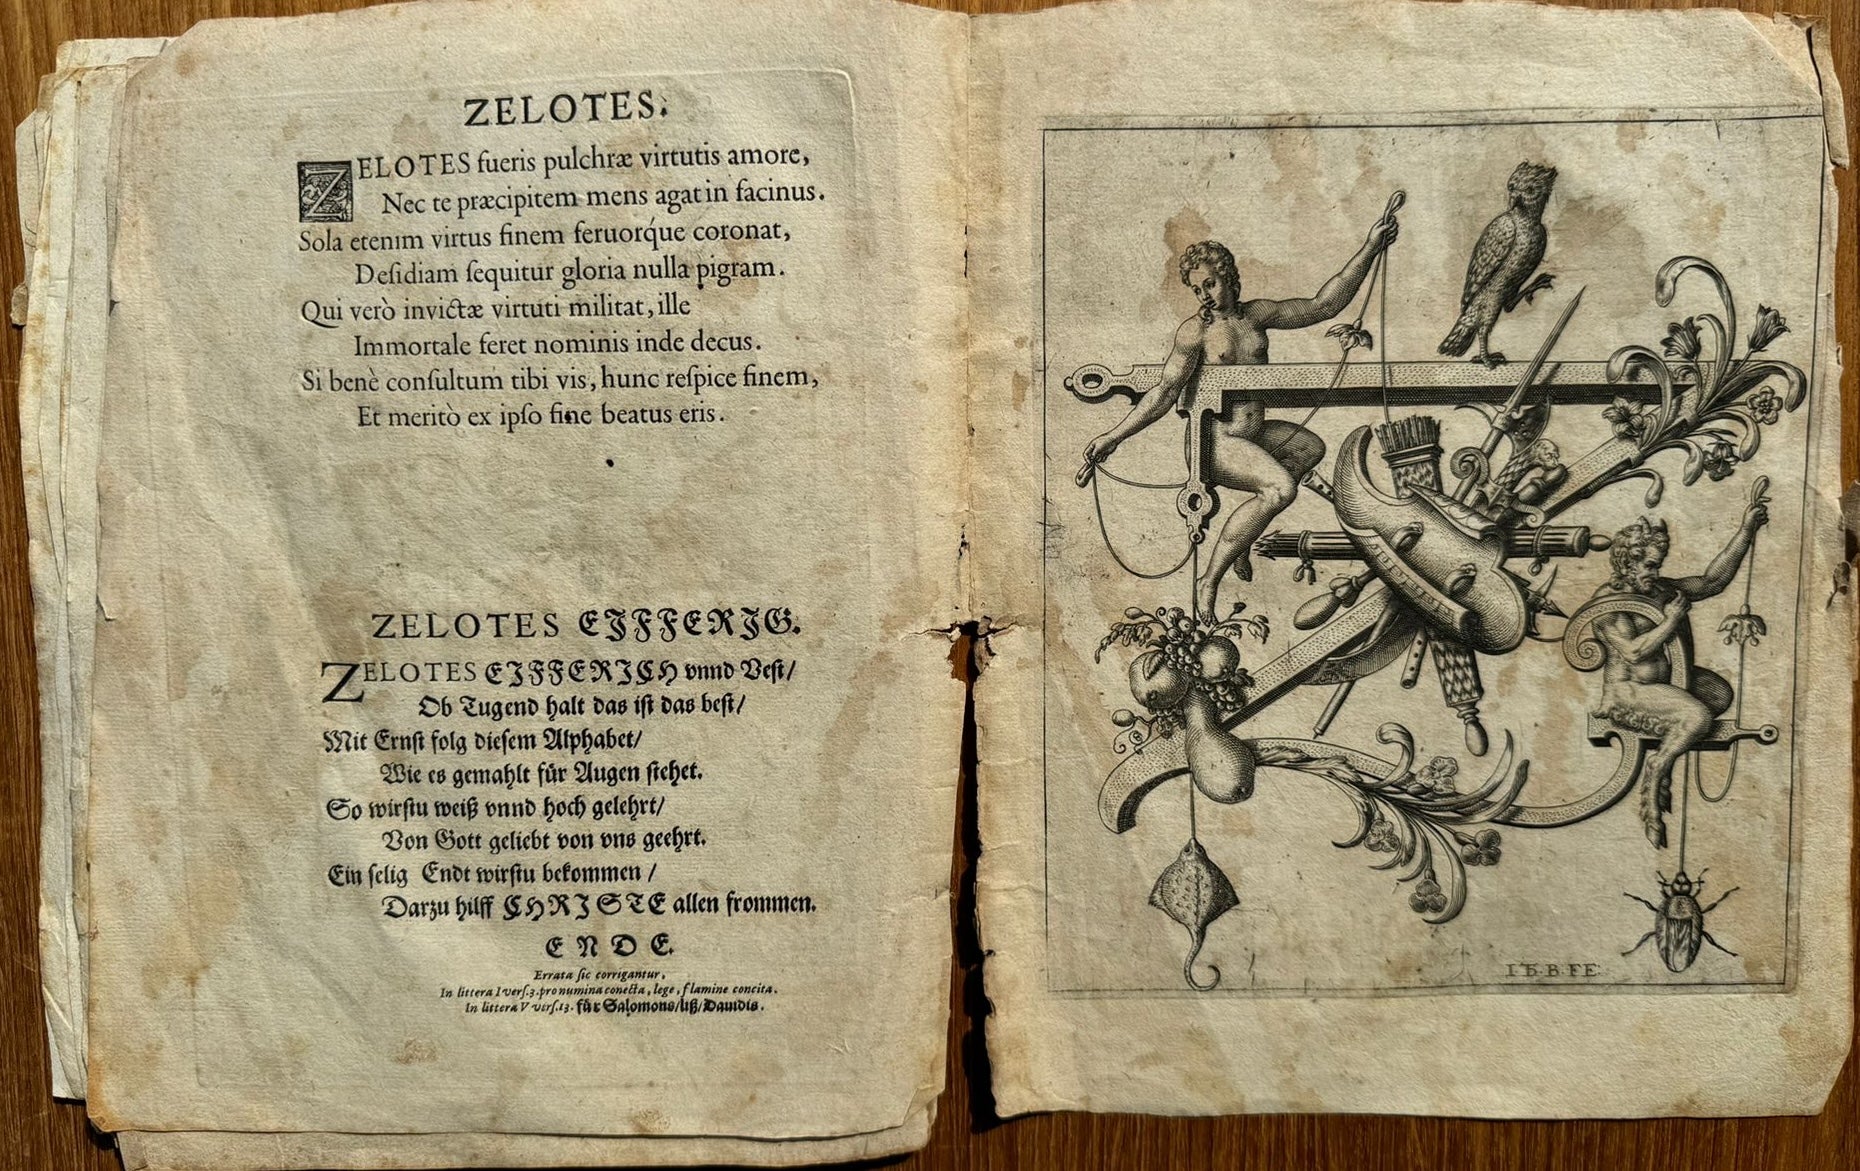 ZELOTES.
ZELOTES fueris pulchræ virtutis amore,
Nec te præcipitem mens agat in facinus.
Sola etenim virtus finem feruorq́ue coronat,
Deſidiam ſequitur gloria nulla pigram.
Qui verò invictæ virtuti militat, ille
Immortale feret nominis inde decus.
Si benè conſultum tibi vis, hunc reſpice finem,
Et meritò ex ipſo fine beatus eris.
ZELOTES EIFFERIG.
ZELOTES EIFFERICH vnnd Veſt/
Ob Tugend halt das iſt das beſt/
Mit Ernſt folg dieſem Alphabet/
Wie es gemahlt für Augen ſtehet.
So wirſtu weiß vnnd hoch gelehrt/
Von Gott geliebt von vns geehrt.
Ein ſelig Endt wirſtu bekommen /
Darzu hilff CHRISTE allen frommen.
ENDE.
Errata ſic corrigantur,
In littera I verſ.3. pro numina conecta, lege, flamine concita.
In littera V verſ.13. für Salomons/liß/Dauidis.
I TB·B·FE·